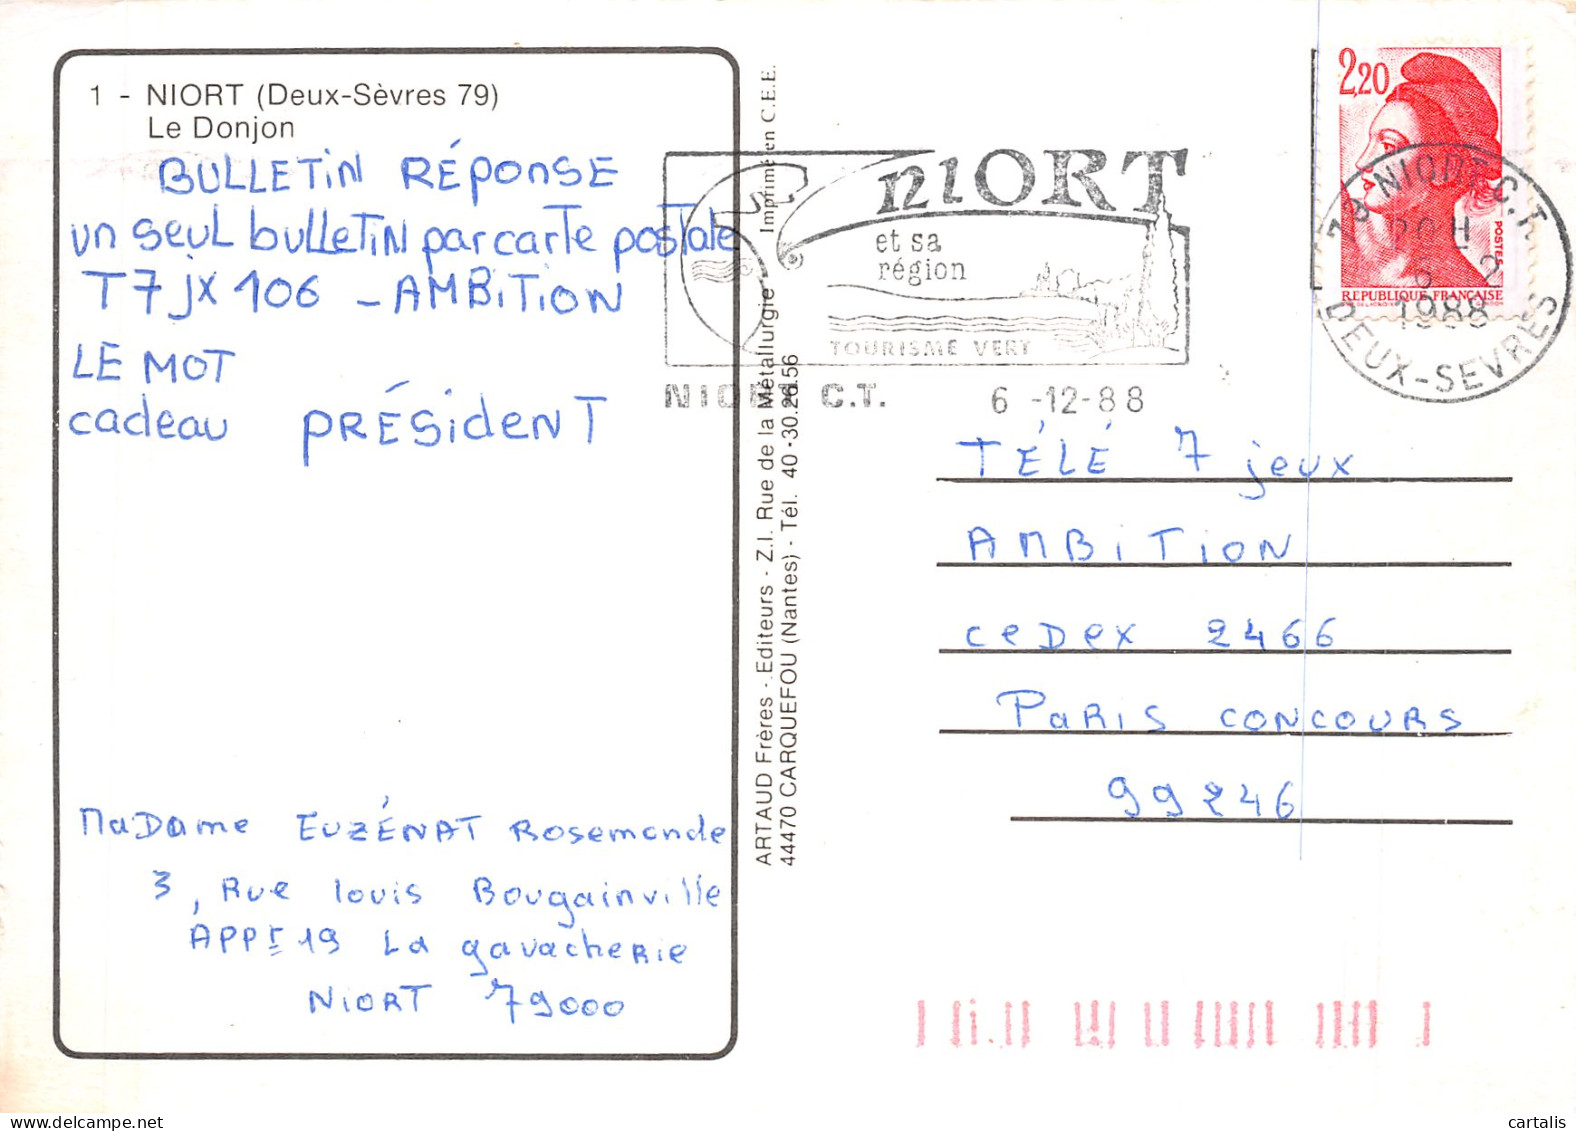 1 - NIORT (Deux-Sèvres 79)
Le Donjon
BULLETIN RÉPONSE
un seul bulletin par carte postale
T7jx 106 - AMBITION
LE MOT
cadeau PRÉSIDENT
MaDame EUZÉNAT Rosemonde
3, Rue Louis Bougainville
APPt 19 La gavacherie
NIORT 79000
ARTAUD Frères - Editeurs - Z.I. Rue de la Métallurgie Imprimé en C.E.E.
44470 CARQUEFOU (Nantes) - Tél. 40-30.26.56
NIORT
et sa
région
TOURISME VERT
NIORT C.T. 6-12-88
2,20
POSTES
REPUBLIQUE FRANÇAISE
79 NIORT C.T.
20H
6 12
1988
DEUX-SEVRES
TÉLÉ 7 jeux
AMBITION
CEDEX 2466
PARIS CONCOURS
99246
cartalis